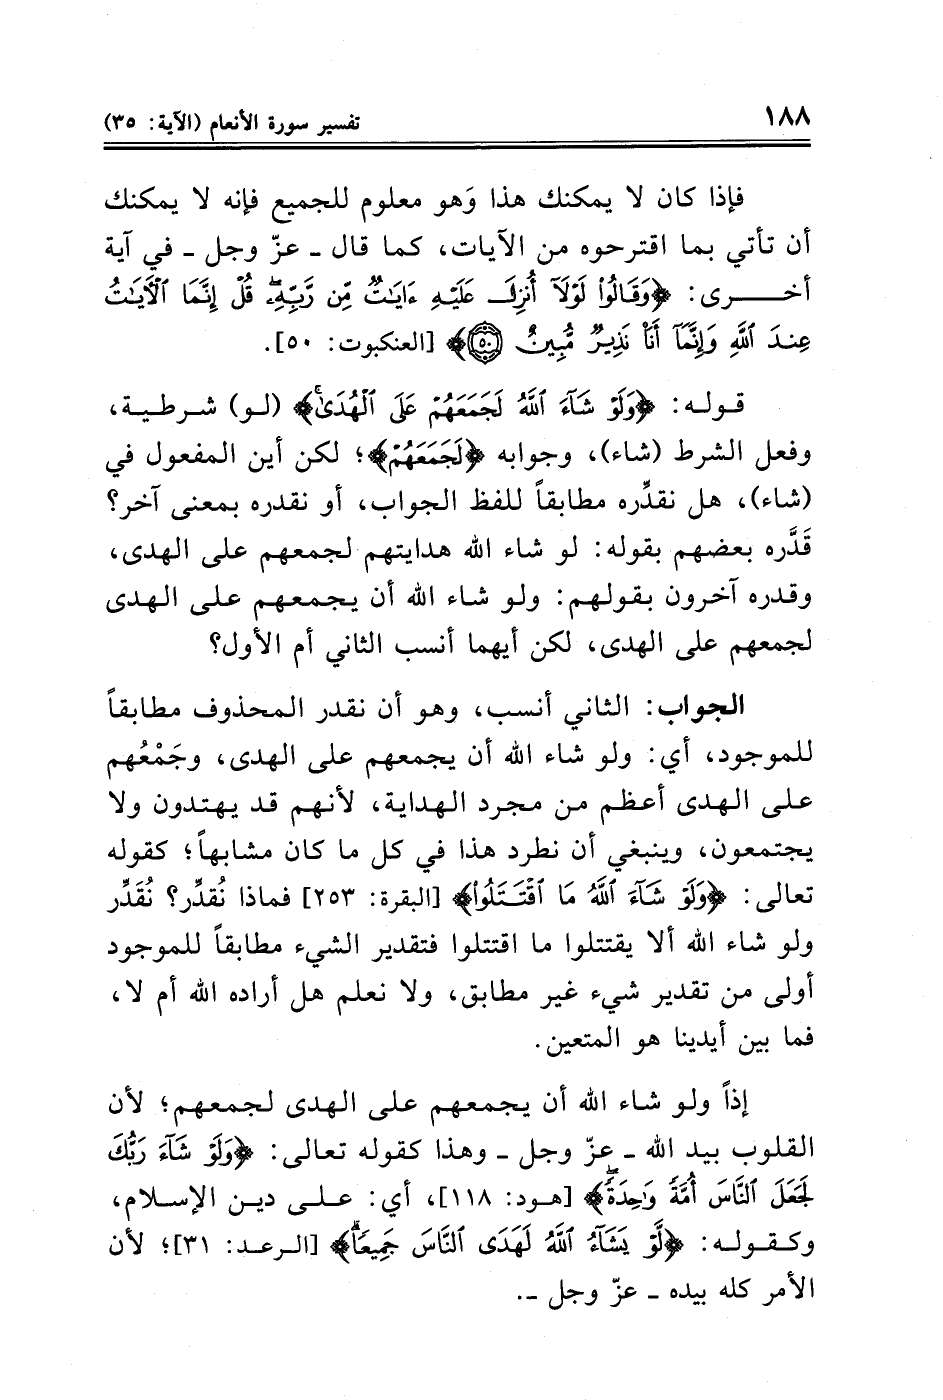 ١٨٨ تفسير سورة الأنعام (الآية: ٣٥)
فإذا كان لا يمكنك هذا وَهو معلوم للجميع فإنه لا يمكنك
أن تأتي بما اقترحوه من الآيات، كما قال ـ عزّ وجل ـ في آية
أخـــرى: ﴿وَقَالُوا۟ لَوْلَآ أُنزِلَ عَلَيْهِ ءَايَـٰتٌ مِّن رَّبِّهِۦ ۖ قُلْ إِنَّمَا ٱلْـَٔايَـٰتُ
عِندَ ٱللَّهِ وَإِنَّمَآ أَنَا۠ نَذِيرٌ مُّبِينٌ ۝٥٠﴾ [العنكبوت: ٥٠].
قـولـه: ﴿وَلَوْ شَآءَ ٱللَّهُ لَجَمَعَهُمْ عَلَى ٱلْهُدَىٰ ۚ﴾ (لو) شـرطـيـة،
وفعل الشرط (شاء)، وجوابه ﴿لَجَمَعَهُمْ﴾؛ لكن أين المفعول في
(شاء)، هل نقدِّره مطابقاً للفظ الجواب، أو نقدره بمعنى آخر؟
قَدَّره بعضهم بقوله: لو شاء الله هدايتهم لجمعهم على الهدى،
وقدره آخرون بقولهم: ولو شاء الله أن يجمعهم على الهدى
لجمعهم على الهدى، لكن أيهما أنسب الثاني أم الأول؟
الجواب: الثاني أنسب، وهو أن نقدر المحذوف مطابقاً
للموجود، أي: ولو شاء الله أن يجمعهم على الهدى، وجَمْعُهم
على الهدى أعظم من مجرد الهداية، لأنهم قد يهتدون ولا
يجتمعون، وينبغي أن نطرد هذا في كل ما كان مشابهاً؛ كقوله
تعالى: ﴿وَلَوْ شَآءَ ٱللَّهُ مَا ٱقْتَتَلُوا۟﴾ [البقرة: ٢٥٣] فماذا نُقدِّر؟ نُقَدِّر
ولو شاء الله ألا يقتتلوا ما اقتتلوا فتقدير الشيء مطابقاً للموجود
أولى من تقدير شيء غير مطابق، ولا نعلم هل أراده الله أم لا،
فما بين أيدينا هو المتعين.
إذاً ولو شاء الله أن يجمعهم على الهدى لجمعهم؛ لأن
القلوب بيد الله ـ عزّ وجل ـ وهذا كقوله تعالى: ﴿وَلَوْ شَآءَ رَبُّكَ
لَجَعَلَ ٱلنَّاسَ أُمَّةً وَٰحِدَةً ۖ﴾ [هود: ١١٨]، أي: عـلـى ديـن الإسـلام،
وكـقـولـه: ﴿لَّوْ يَشَآءُ ٱللَّهُ لَهَدَى ٱلنَّاسَ جَمِيعًا ۗ﴾ [الرعـد: ٣١]؛ لأن
الأمر كله بيده ـ عزّ وجل ـ.